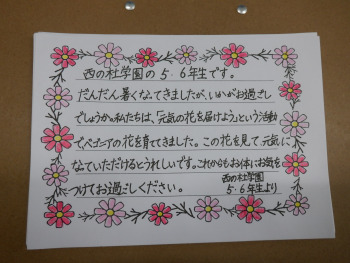 西の杜学園の５・６年生です。
だんだん暑くなってきましたが、いかがお過ごし
でしょうか。私たちは、「元気の花を届けよう」という活動
でベゴニアの花を育ててきました。この花を見て、元気に
なっていただけるとうれしいです。これからもお体にお気を
つけてお過ごしください。
西の杜学園
５・６年生より